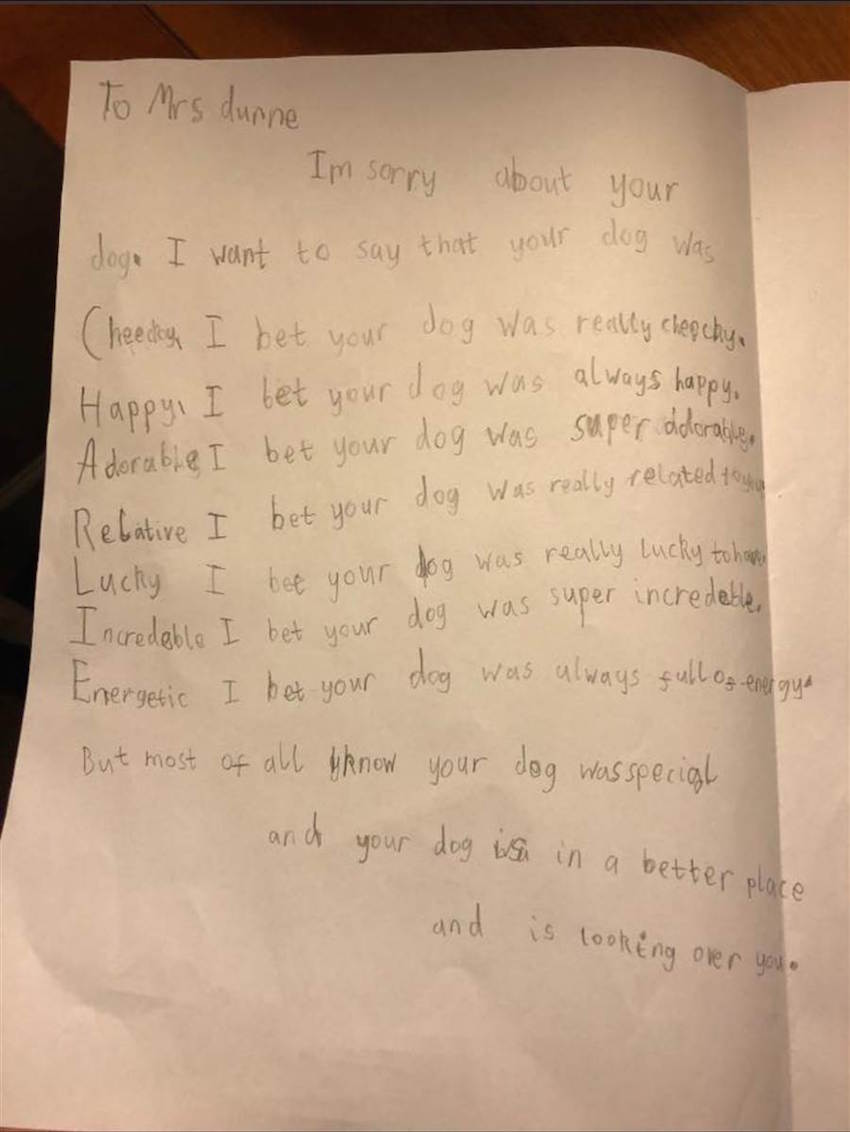 To Mrs dunne
Im sorry about your
dog. I want to say that your dog was
Cheecky, I bet your dog was really cheecky.
Happy, I bet your dog was always happy.
Adorable, I bet your dog was super adorable.
Relative I bet your dog was really related to you
Lucky I bet your dog was really lucky to have
Incredeble I bet your dog was super incredeble.
Energetic I bet your dog was always full of energy.
But most of all I know your dog was special
and your dog is in a better place
and is looking over you.